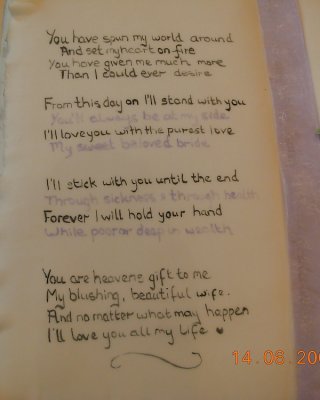 You have spun my world around
And set my heart on fire
You have given me much more
Than I could ever desire
From this day on I'll stand with you
You'll always be at my side
I'll love you with the purest love
My sweet beloved bride
I'll stick with you until the end
Through sickness & through health
Forever I will hold your hand
While poor or deep in wealth
You are heavens gift to me
My blushing, beautiful wife.
And no matter what may happen
I'll love you all my life
14.08.200